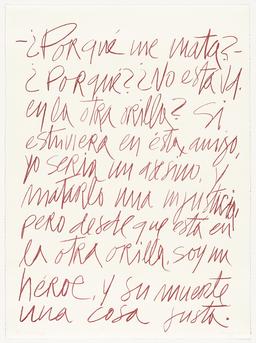 -¿Porqué me mata?-
¿Porqué? ¿No está Vd.
en la otra orilla? Si
estuviera en ésta, amigo,
yo sería un asesino, y
matarlo una injusticia,
pero desde que está en
la otra orilla, soy un
héroe, y su muerte
una cosa justa.